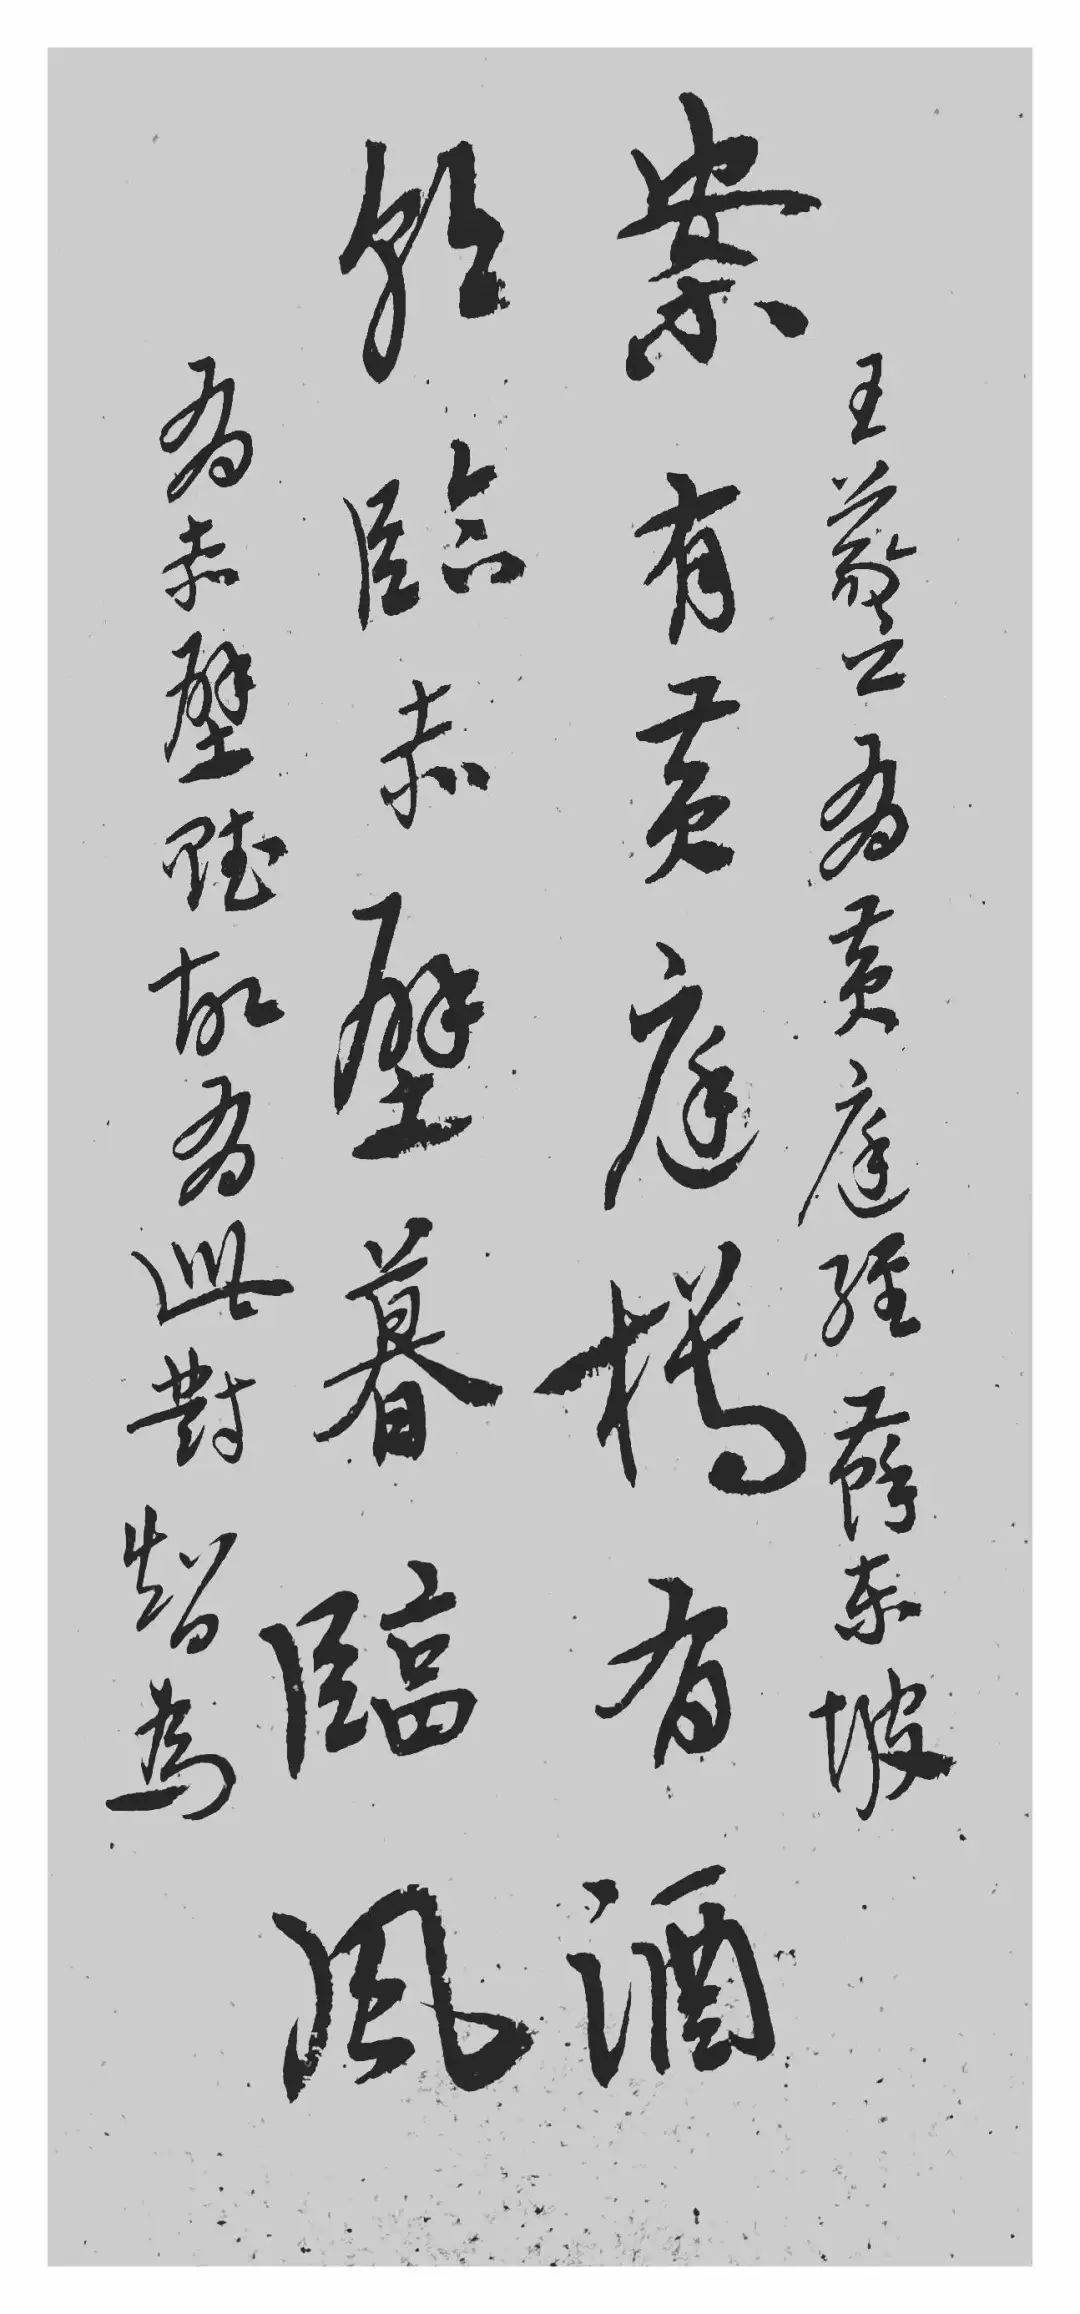 王羲之為黄庭經蘇東坡
案有黄庭樽有酒
朝臨赤壁暮臨風
為赤壁賦故為此對智為